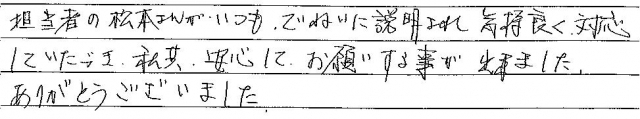 担当者の松本さんがいつも、ていねいに説明され気持良く、対応
していただき、私共、安心して、お願いする事が出来ました。
ありがとうございました